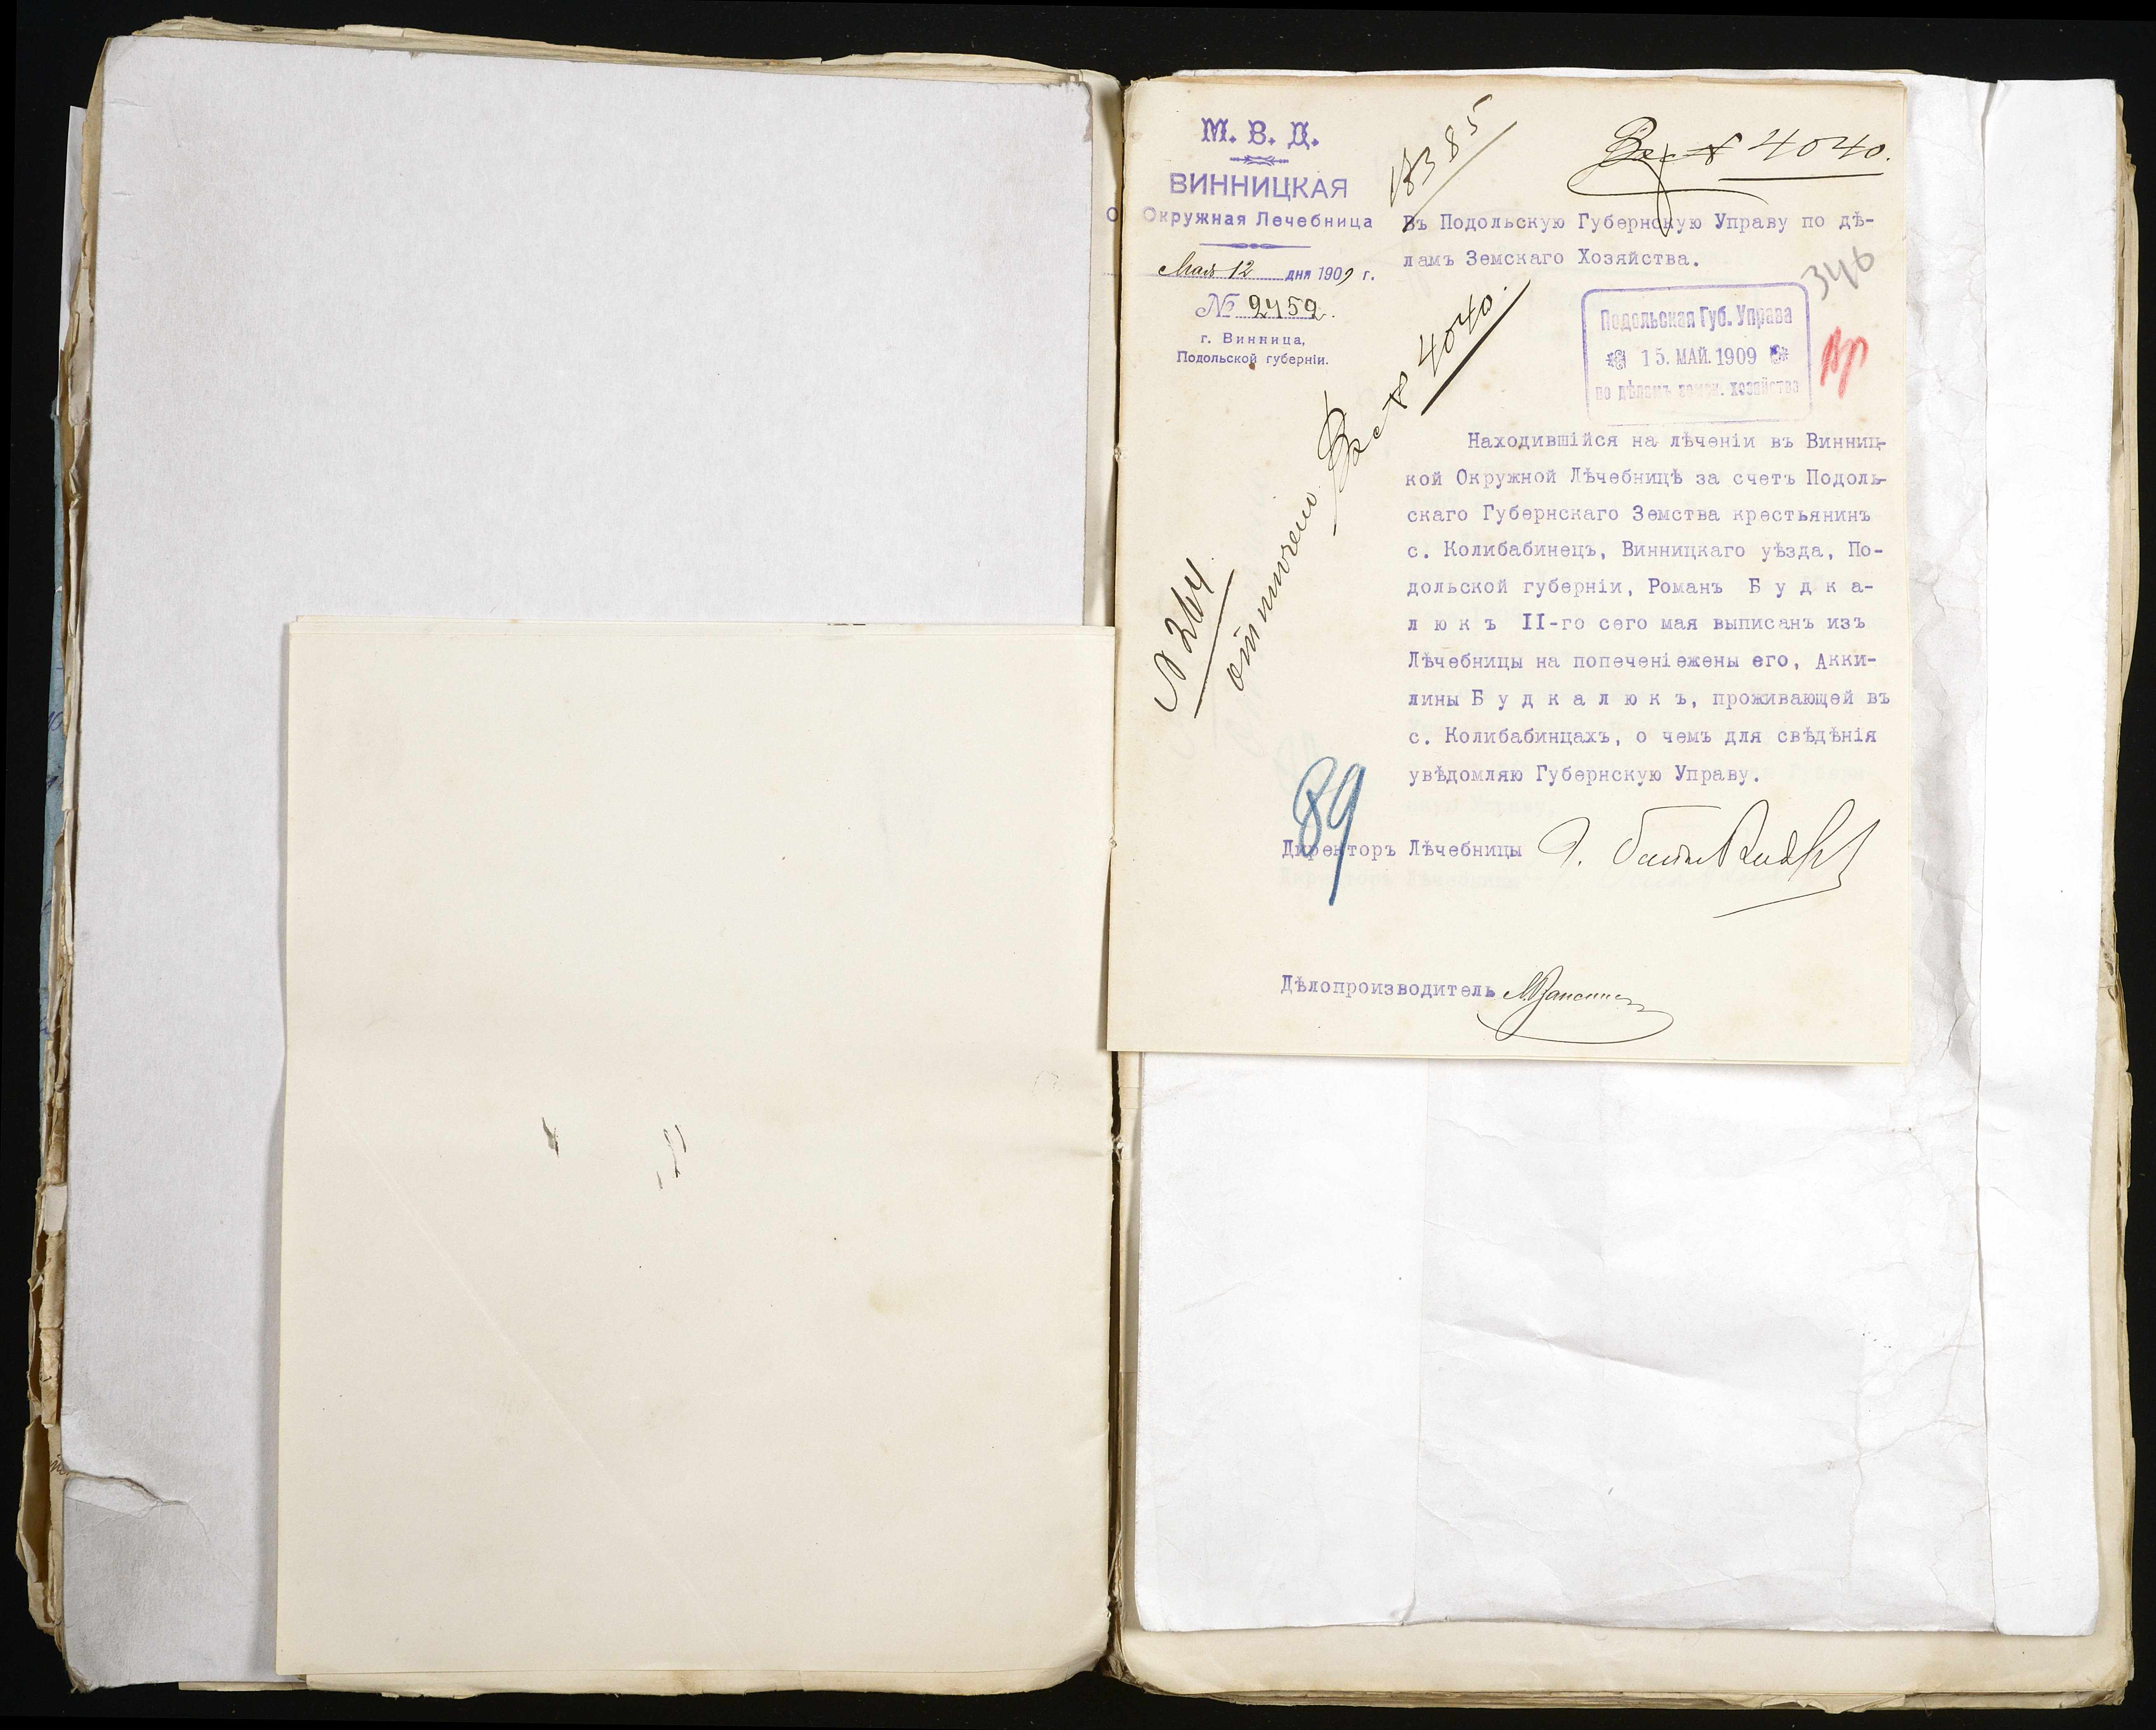 М. В. Д.
ВИННИЦКАЯ
Окружная Лечебница
Мая 12 дня 1909 г.
№ 2459.
г. Винница,
Подольской губерніи.
18385
4040.
Въ Подольскую Губернскую Управу по дѣ-
ламъ Земскаго Хозяйства.
346
Подольская Губ. Управа
15. МАЙ. 1909
по дѣламъ земск. хозяйства
№ 264
4040.
Находившійся на лѣченіи въ Винниц-
кой Окружной Лѣчебницѣ за счетъ Подоль-
скаго Губернскаго Земства крестьянинъ
с. Колибабинецъ, Винницкаго уѣзда, По-
дольской губерніи, Романъ Б у д к а-
л ю к ъ II-го сего мая выписанъ изъ
Лѣчебницы на попеченіежены его, Акки-
лины Б у д к а л ю к ъ, проживающей въ
с. Колибабинцахъ, о чемъ для свѣдѣнія
увѣдомляю Губернскую Управу.
89
Директоръ Лѣчебницы
Дѣлопроизводитель